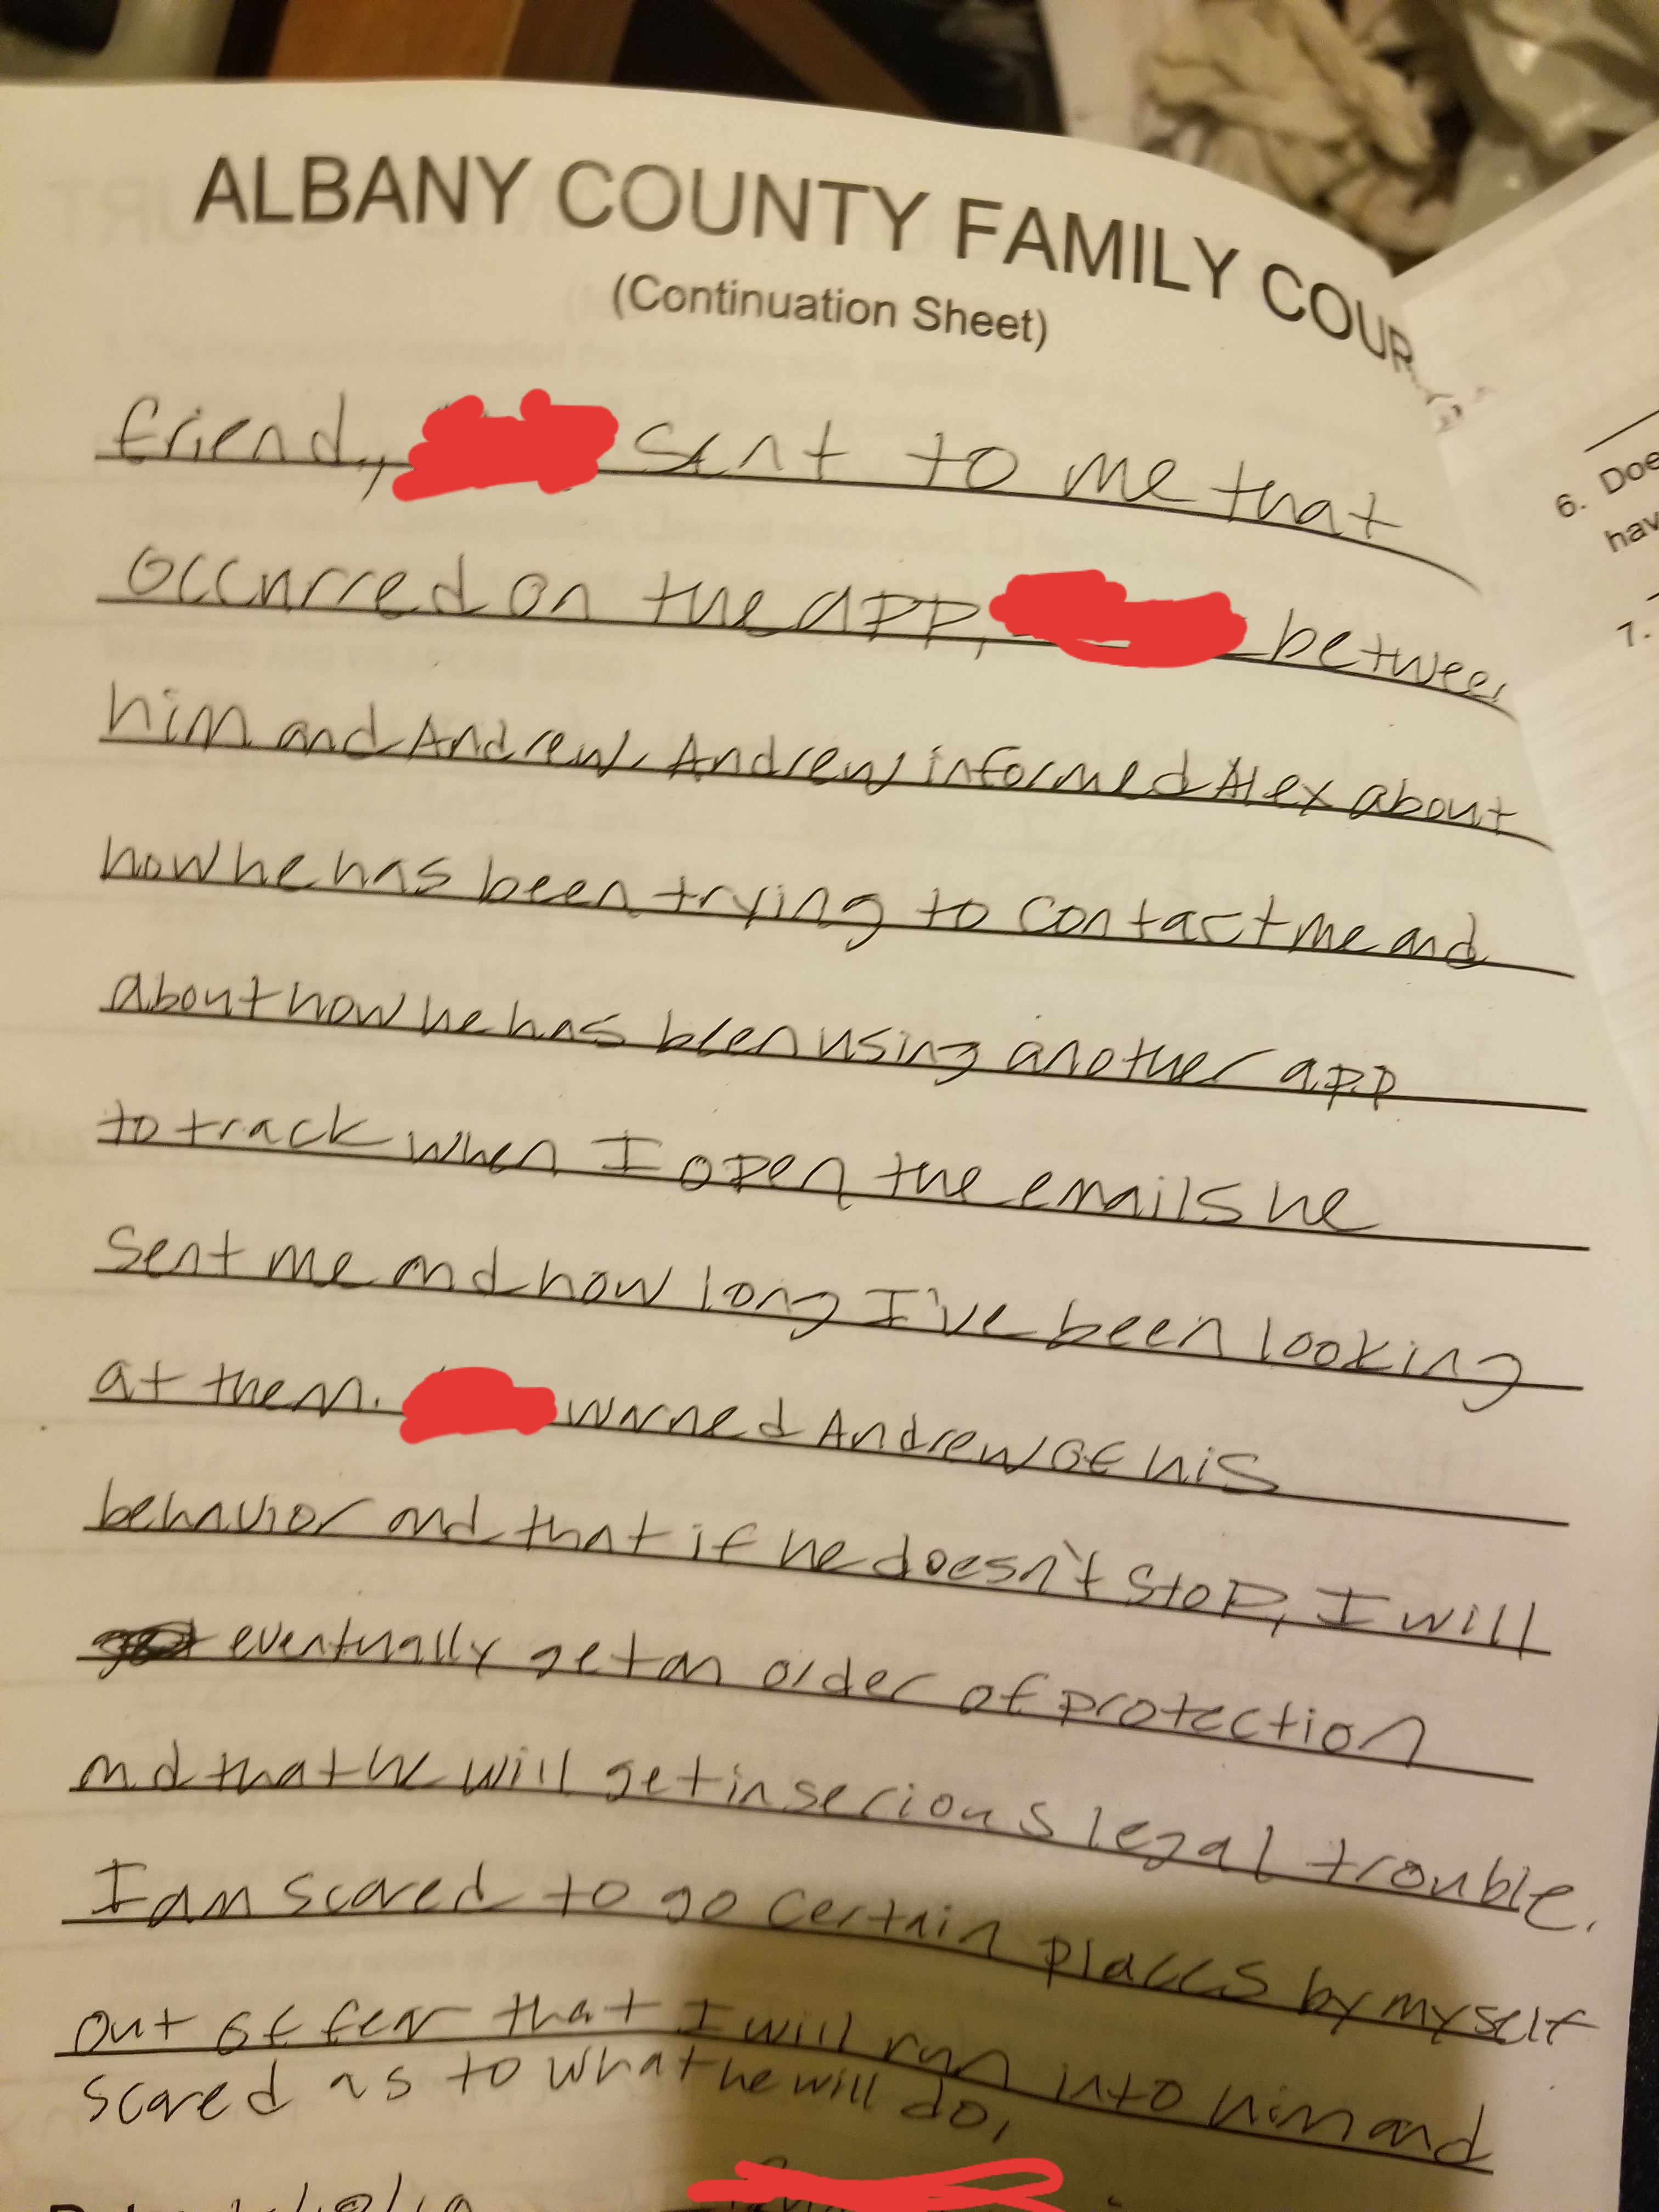 ALBANY COUNTY FAMILY COUR
(Continuation Sheet)
friend, sent to me that
occurred on the app, between
him and Andrew. Andrew informed Alex about
how he has been trying to contact me and
about how he has been using another app
to track when I open the emails he
sent me and how long I've been looking
at them. warned Andrew of his
behavior and that if he doesn't stop, I will
eventually get an order of protection
and that he will get in serious legal trouble.
I am scared to go certain places by myself
out of fear that I will run into him and
scared as to what he will do.
6. Doe
hav
7.